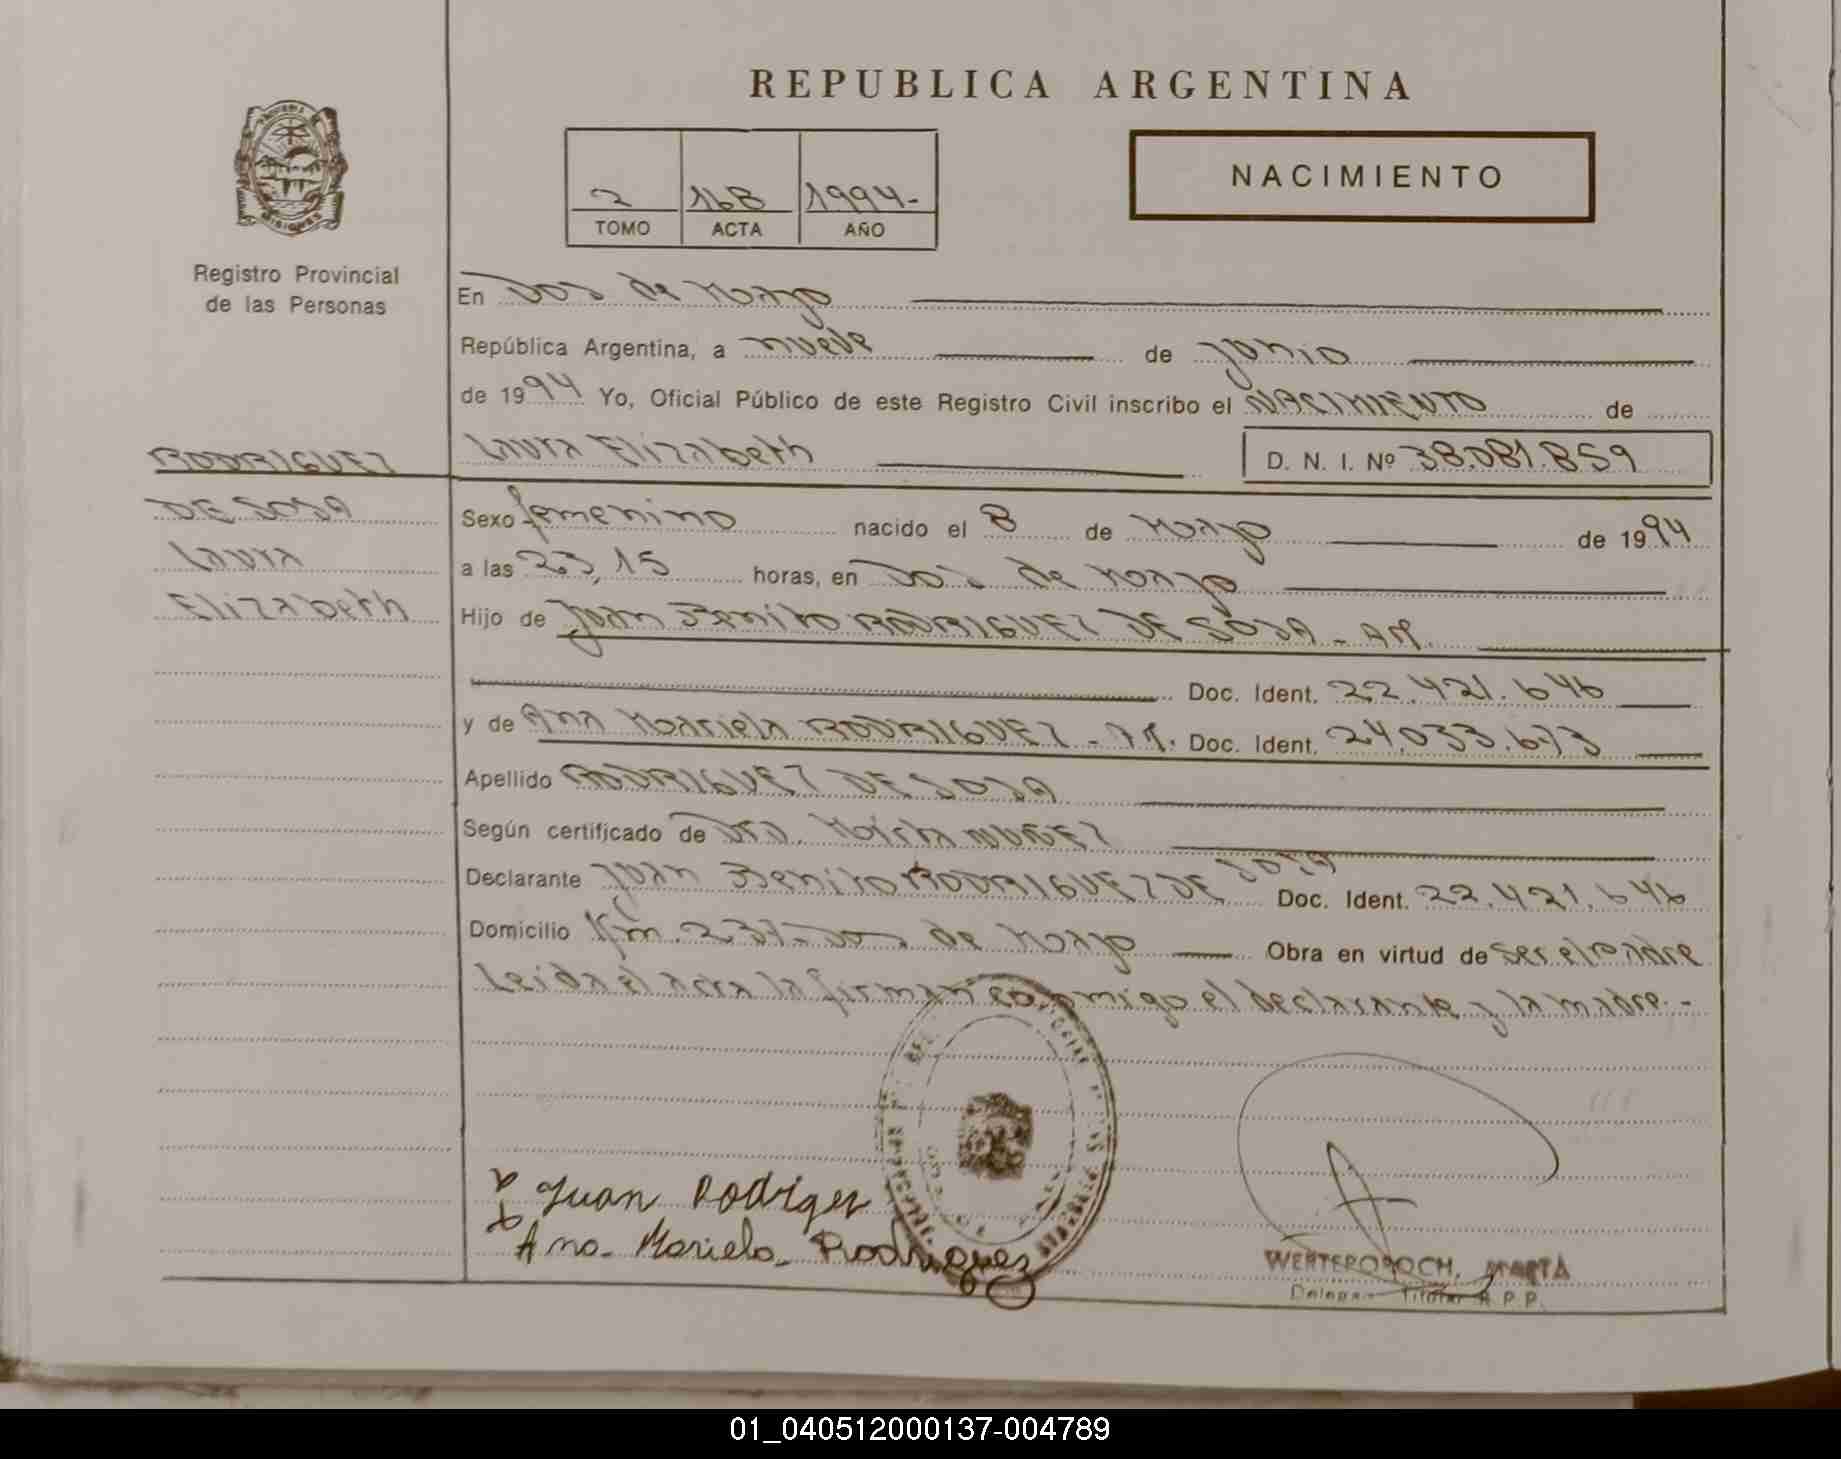 REPUBLICA ARGENTINA
NACIMIENTO
2 168 1994-
TOMO ACTA AÑO
MISIONES
Registro Provincial
de las Personas
En Dos de Mayo
República Argentina, a nueve de junio
de 1994 Yo, Oficial Público de este Registro Civil inscribo el NACIMIENTO de
RODRIGUEZ
Laura Elizabeth D. N. I. Nº 38.081.859
DE SOSA
Sexo femenino nacido el 8 de Mayo de 1994
Laura
a las 23,15 horas, en Dos de Mayo
Elizabeth
Hijo de Juan Benito RODRIGUEZ DE SOSA - AM.
Doc. Ident. 22.421.646
y de Ana Mariela RODRIGUEZ - M. Doc. Ident. 24.033.673
Apellido RODRIGUEZ DE SOSA
Según certificado de Dra. NUÑEZ
Declarante Juan Benito RODRIGUEZ DE SOSA Doc. Ident. 22.421.646
Domicilio Km. 237- Dos de Mayo Obra en virtud de ser el padre
Leida el acta la firman conmigo el declarante y la madre.-
x Juan Rodriger
x Ana Mariela Rodriguez
WERTEPOROCH, MARTA
Titular R.P.P.
01_040512000137-004789